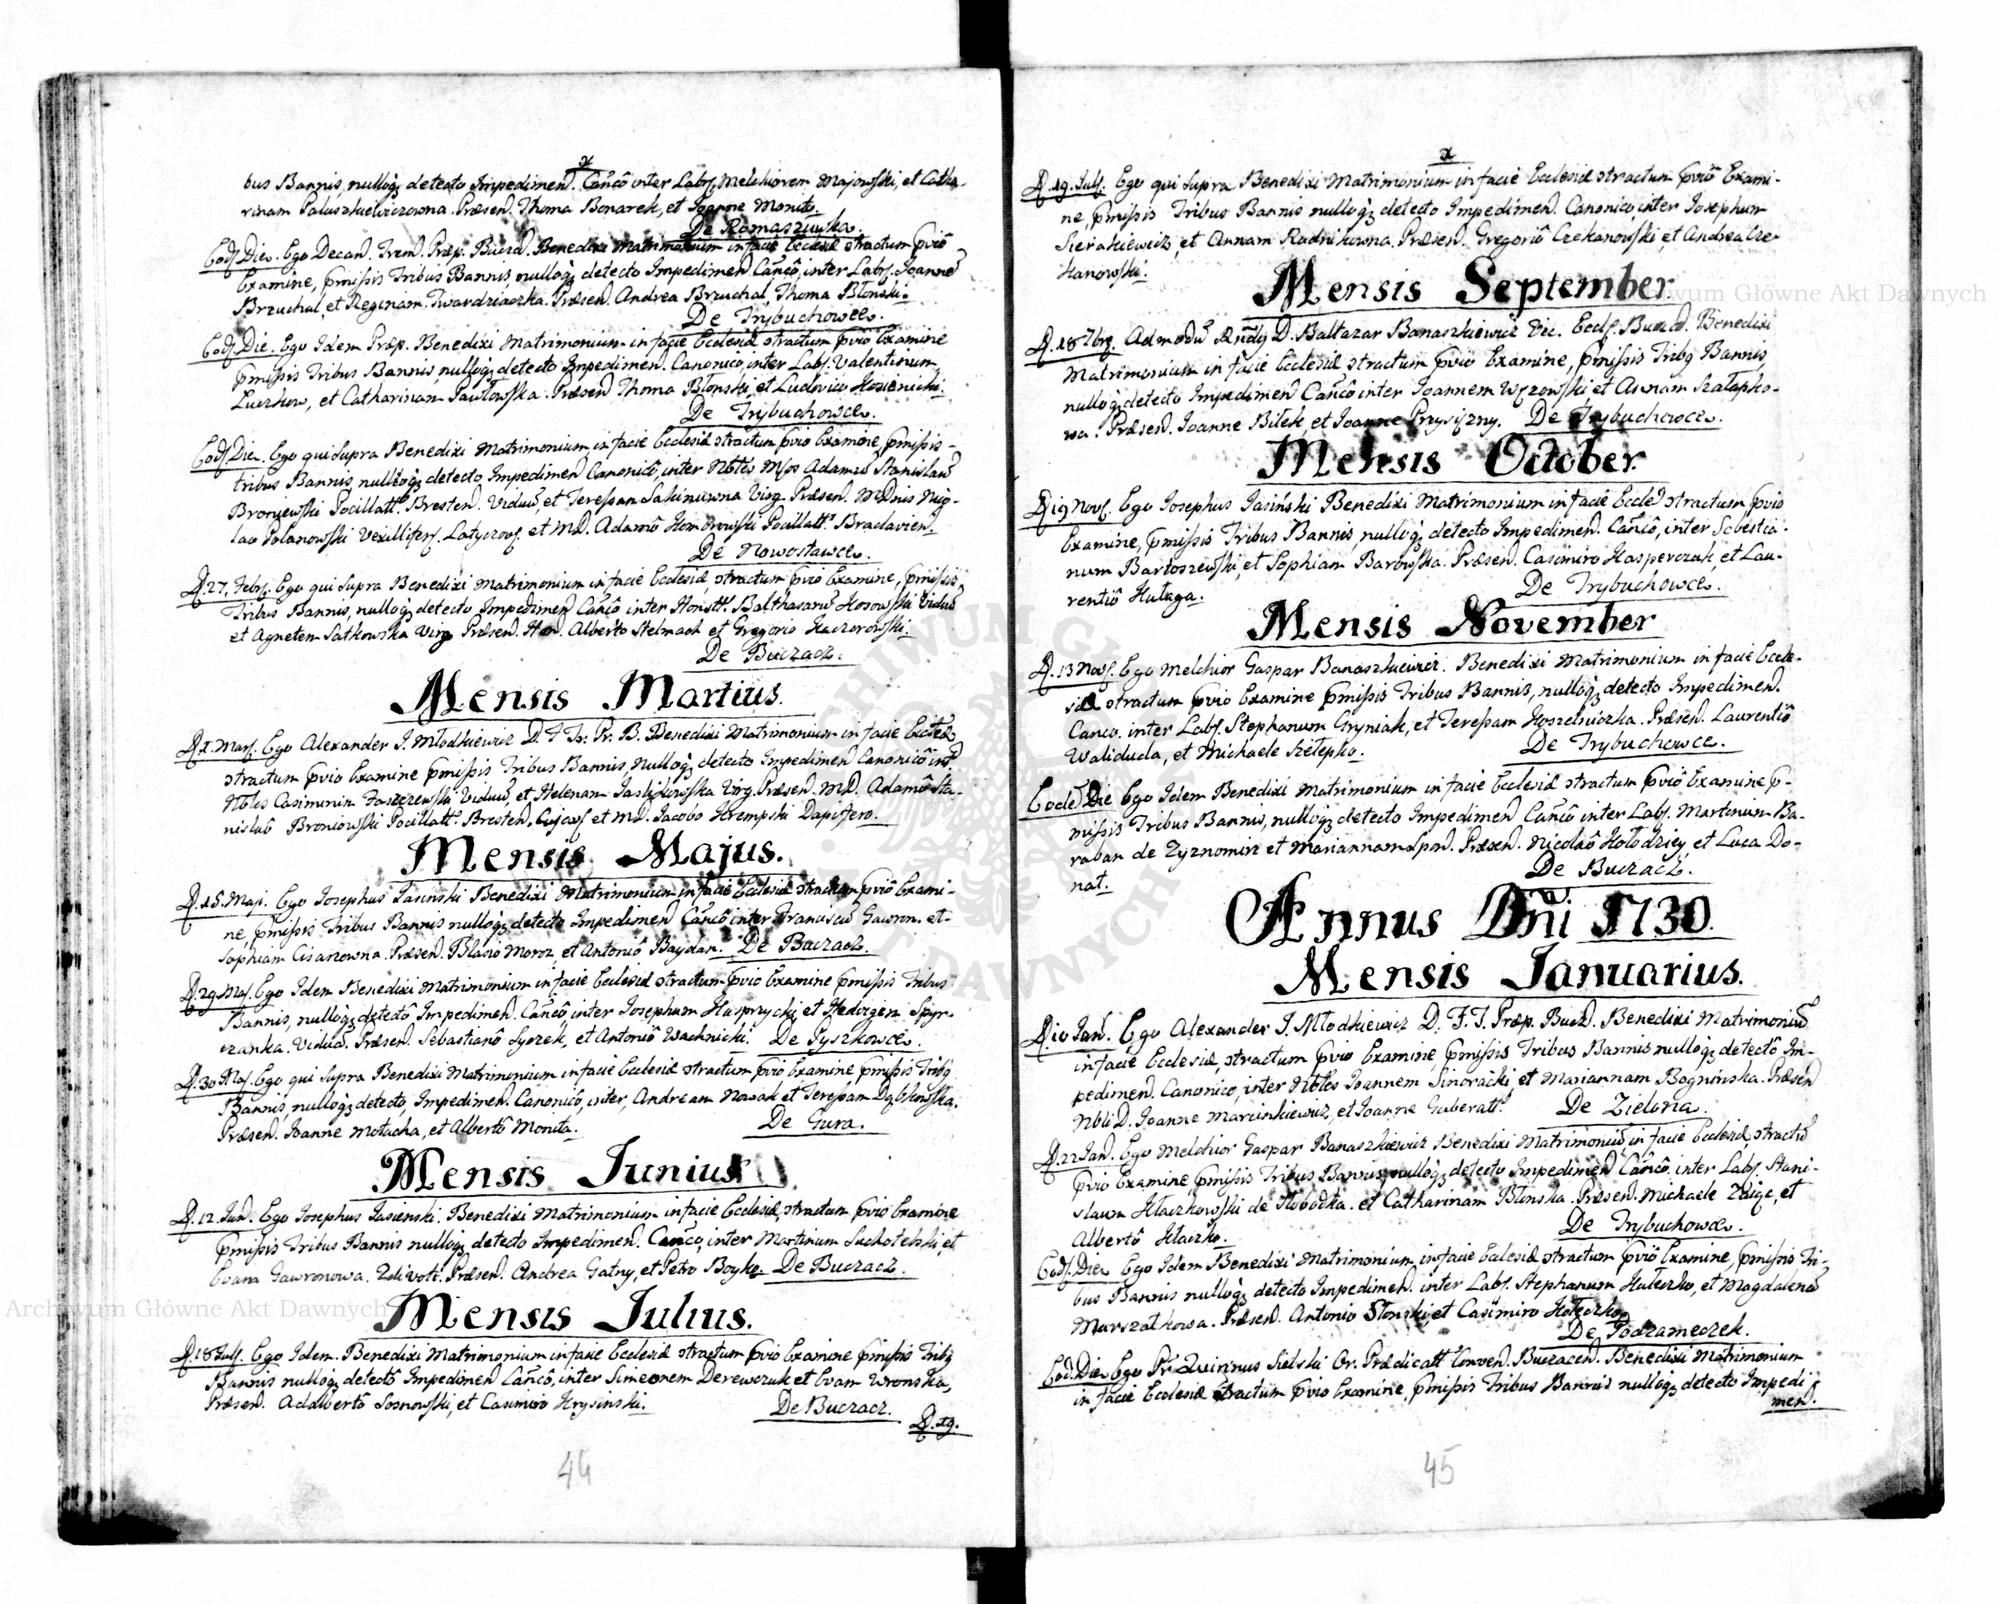 x
bus Bannis, nulloq₃ detecto Impedimen. Canco inter Labs. Melchiorem Majowski, et Catha-
rinam Paluszkiewiczowna. Præsen. Thoma Bonarek, et Joanne Monita.
De Romaszuwka.
Eod. Die. Ego Decan. Trem. Præp. Buczd. Benedixi Matrimonium in facie Ecclesiæ stractum prvio
Examine, pmissis Tribus Bannis, nulloq₃ detecto Impedimen. Canco, inter Labs. Joanne
Brzuchal, et Reginam Twardziaczka. Præsen. Andrea Brzuchal, Thoma Błonski.
De Trybuchowce.
Eod. Die. Ego Idem Præp. Benedixi Matrimonium in facie Ecclesiæ stractum prvio Examine
pmissis Tribus Bannis, nulloq₃ detecto Impedimen. Canonico, inter Labs. Valentinum
Luczkow, et Catharinam Pawłowska. Præsen Thoma Błonski, et Ludovico
De Trybuchowce.
Eod. Die. Ego qui Supra Benedixi Matrimonium in facie Ecclesiæ stractum prvio Examine, pmissis
tribus Bannis, nulloq₃ detecto Impedimen Canonico, inter Nbles Mfos Adamum Stanislaum
Broniewski Pocillatt. Bresten. Viduu, et Teressam Virg. Præsen. MDnis
lao Polanowski Vexillifer. Latyczov. et MD. Adamo Pocillatt. Braclavien.
De Nowostawce.
D. 27. Febr. Ego qui Supra Benedixi Matrimonium in facie Ecclesiæ, stractum prvio Examine, pmissis
Tribus Bannis, nulloq₃ detecto Impedimen. Canco inter Honstt. Balthasaru Kosowski Viduu
et Agnetem Satkowska Virg. Præsen. Hon. Alberto Stelmach et Gregorio Kaczorowski.
De Buczacz.
Mensis Martius.
D. 1. Mar. Ego Alexander I. Młodkiewicz D. F. Tr. Pr. B. Benedixi Matrimonium in facie Eccles
stractum prvio Examine pmissis Tribus Bannis, nulloq₃ detecto Impedimen Canonico int.
Nbles Casimirum Viduu, et Helenam Virg. Præsen. MD. Adamo Sta-
nislao Broniowski Pocillatt. Bresten, et MD. Jacobo Krempski Dapifero.
Mensis Majus.
D. 15. Maji. Ego Josephus Jasinski Benedixi Matrimonium in facie Ecclesiæ stractum prvio Exami-
ne, pmissis Tribus Bannis nulloq₃ detecto Impedimen Canco inter Franciscu Gawron. et
Sophiam Cisanowna. Præsen. Blasio Moroz, et Antonio Baydan. De Buczacz.
D. 29 Maj. Ego Idem Benedixi Matrimonium in facie Ecclesiæ stractum prvio Examine pmissis Tribus
Bannis, nulloq₃ detecto Impedimen. Canco, inter Josephum Kasprzycki et Hedvigem Spyr-
czanka. Vidua. Præsen. Sebastiano Syczek, et Antonio Wachnicki. De Pyszkowce.
D. 30 Maj. Ego qui Supra Benedixi Matrimonium in facie Ecclesiæ stractum prvio Examine pmissis Tribq
Bannis, nulloq₃ detecto, Impedimen. Canonico, inter, Andream Nowak et Teressam Dąbkowska.
Præsen. Joanne Motacha, et Alberto Monita.
De Gura.
Mensis Junius
D. 12. Jun. Ego Josephus Jasienski. Benedixi Matrimonium in facie Ecclesiæ, stractum prvio Examine
pmissis Tribus Bannis nulloq₃ detecto Impedimen. Canco, inter Martinum Suchotelski et
Evana Gawronowa. 2di voti. Præsen. Andrea Gatny, et Petro Boyko. De Buczacz.
Mensis Julius.
D. 18 Jul. Ego Idem. Benedixi Matrimonium in facie Ecclesiæ stractum prvio Examine pmissis Tribq
Bannis nulloq₃ detecto Impedimen Canco, inter Simeonem Derewczuk et Evam Wronska,
Præsen. Adalberto Sosnowski, et Casimiro Krysinski.
De Buczacz.
D. 19.
44
x
D. 19. Jul. Ego qui Supra Benedixi Matrimonium in facie Ecclesiæ stractum prvio Exami-
ne, pmissis Tribus Bannis nulloq₃ detecto Impedimen. Canonico, inter Josephum
Sierakiewicz, et Annam Rudnikowna. Præsen. Gregorio Czekanowski, et Andrea Cze-
kanowski.
Mensis September.
D. 18 7brq. Admodu Rndq D. Baltazar Banaszkiewicz Vic. Eccl. Buczd. Benedixi
Matrimonium in facie Ecclesiæ stractum prvio Examine, pmissis Tribq Bannis,
nulloq₃ detecto Impedimen Canco inter Joannem Wązowski, et Annam Szałapko-
wa. Præsen. Joanne Bilek, et Joanne Przysiężny. De Trybuchowce.
Mensis October.
D. 19 Nov. Ego Josephus Jasiński Benedixi Matrimonium in facie Eccle stractum prvio
Examine, pmissis Tribus Bannis, nulloq₃ detecto Impedimen. Canco, inter Sebestia-
num Bartoszewski, et Sophiam Barowska. Præsen. Casimiro Kasperczak, et Lau-
rentio Hułaga.
De Trybuchowce.
Mensis November
D. 13 Nov. Ego Melchior Gaspar Banaszkiewicz. Benedixi Matrimonium in facie Eccle-
siæ stractum prvio Examine pmissis Tribus Bannis, nulloq₃ detecto Impedimen.
Canco. inter Labs. Stephanum Gryniak, et Teressam Koszelniczka. Præsen. Laurentio
Waliduda, et Michaele Szełepko.
De Trybuchowce.
Eode Die Ego Idem Benedixi Matrimonium in facie Ecclesiæ stractum prvio Examine p-
missis Tribus Bannis, nulloq₃ detecto Impedimen Canco inter Labs. Martinum Ba-
raban de Zyznomirz et Mariannam Præsen. Nicolao Hołodziey et Luca Do-
nat.
De Buczacz.
Annus Dni 1730.
Mensis Januarius.
D. 10 Jan. Ego Alexander I. Młodkiewicz D. F. T. Præp. Buczd. Benedixi Matrimoniu
in facie Ecclesiæ, stractum prvio Examine, pmissis Tribus Bannis nulloq₃ detecto Im-
pedimen. Canonico, inter Nbles Joannem Sinoracki, et Mariannam Bogninska. Præsen
Nbli D. Joanne Marcinkiewicz, et Joanne Guberatt. De Zielona.
D. 22 Jan. Ego Melchior Gaspar Banaszkiewicz Benedixi Matrimoniu in facie Ecclesiæ, stractu
prvio Examine, pmissis Tribus Bannis, nulloq₃ detecto Impedimen Canco. inter Labs. Stani-
slaum Klaczkowski de Słobodka. et Catharinam Błonska. Præsen. Michaele Zaige, et
Alberto Klaczko.
De Trybuchowce.
Eod. Die. Ego Idem Benedixi Matrimonium, in facie Ecclesiæ stractum prvio Examine, pmissis Tri-
bus Bannis nulloq₃ detecto Impedimen. inter Labs. Stephanum Kuleczko, et Magdalena
Marszałkowa. Præsen. Antonio Słonski et Casimiro Hołoczko.
De Podzameczek.
Eod. Die Ego Pr. Quirinus Sielski Or. Prædicatt Conven. Buczacen. Benedixi Matrimonium
in facie Ecclesiæ stractum prvio Examine, pmissis Tribus Bannis nulloq₃ detecto Impedi
men.
45
Archiwum Główne Akt Dawnych
Archiwum Główne Akt Dawnych
ARCHIWUM GŁÓWNE AKT DAWNYCH